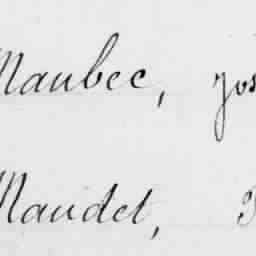 Maubec, Jos
Maudet,